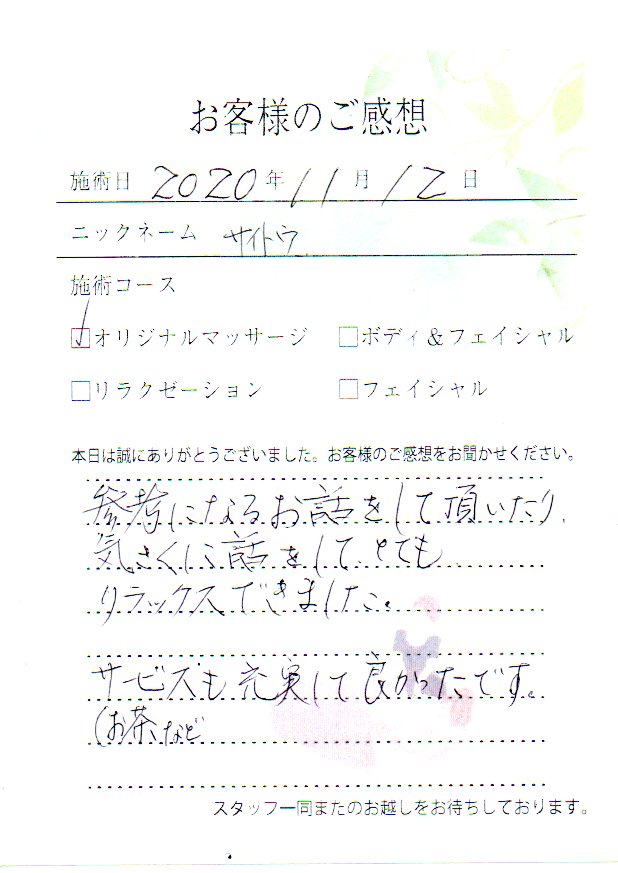 お客様のご感想
施術日 2020年11月12日
ニックネーム サイトウ
施術コース
☑オリジナルマッサージ □ボディ&フェイシャル
□リラクゼーション □フェイシャル
本日は誠にありがとうございました。お客様のご感想をお聞かせください。
参考になるお話をして頂いたり、
気さくに話をして、とても
リラックスできました。
サービスも充実して良かったです。
(お茶など
スタッフ一同またのお越しをお待ちしております。